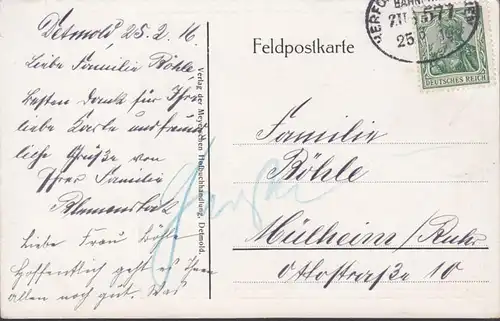 Detmold 25.2.16
Liebe Familie Böhle.
Besten Dank für Ihre
liebe Karte und freund
liche Grüße von
Ihrer Familie
Liebe Frau Böhle
Hoffentlich geht es Ihnen
allen noch gut. Was
Verlag der Meyerschen Hofbuchhandlung, Detmold.
Feldpostkarte
BAHNPOST
ZUG 577
25
DEUTSCHES REICH
Familie
Böhle
Mülheim/Ruhr
Ottostraße 10